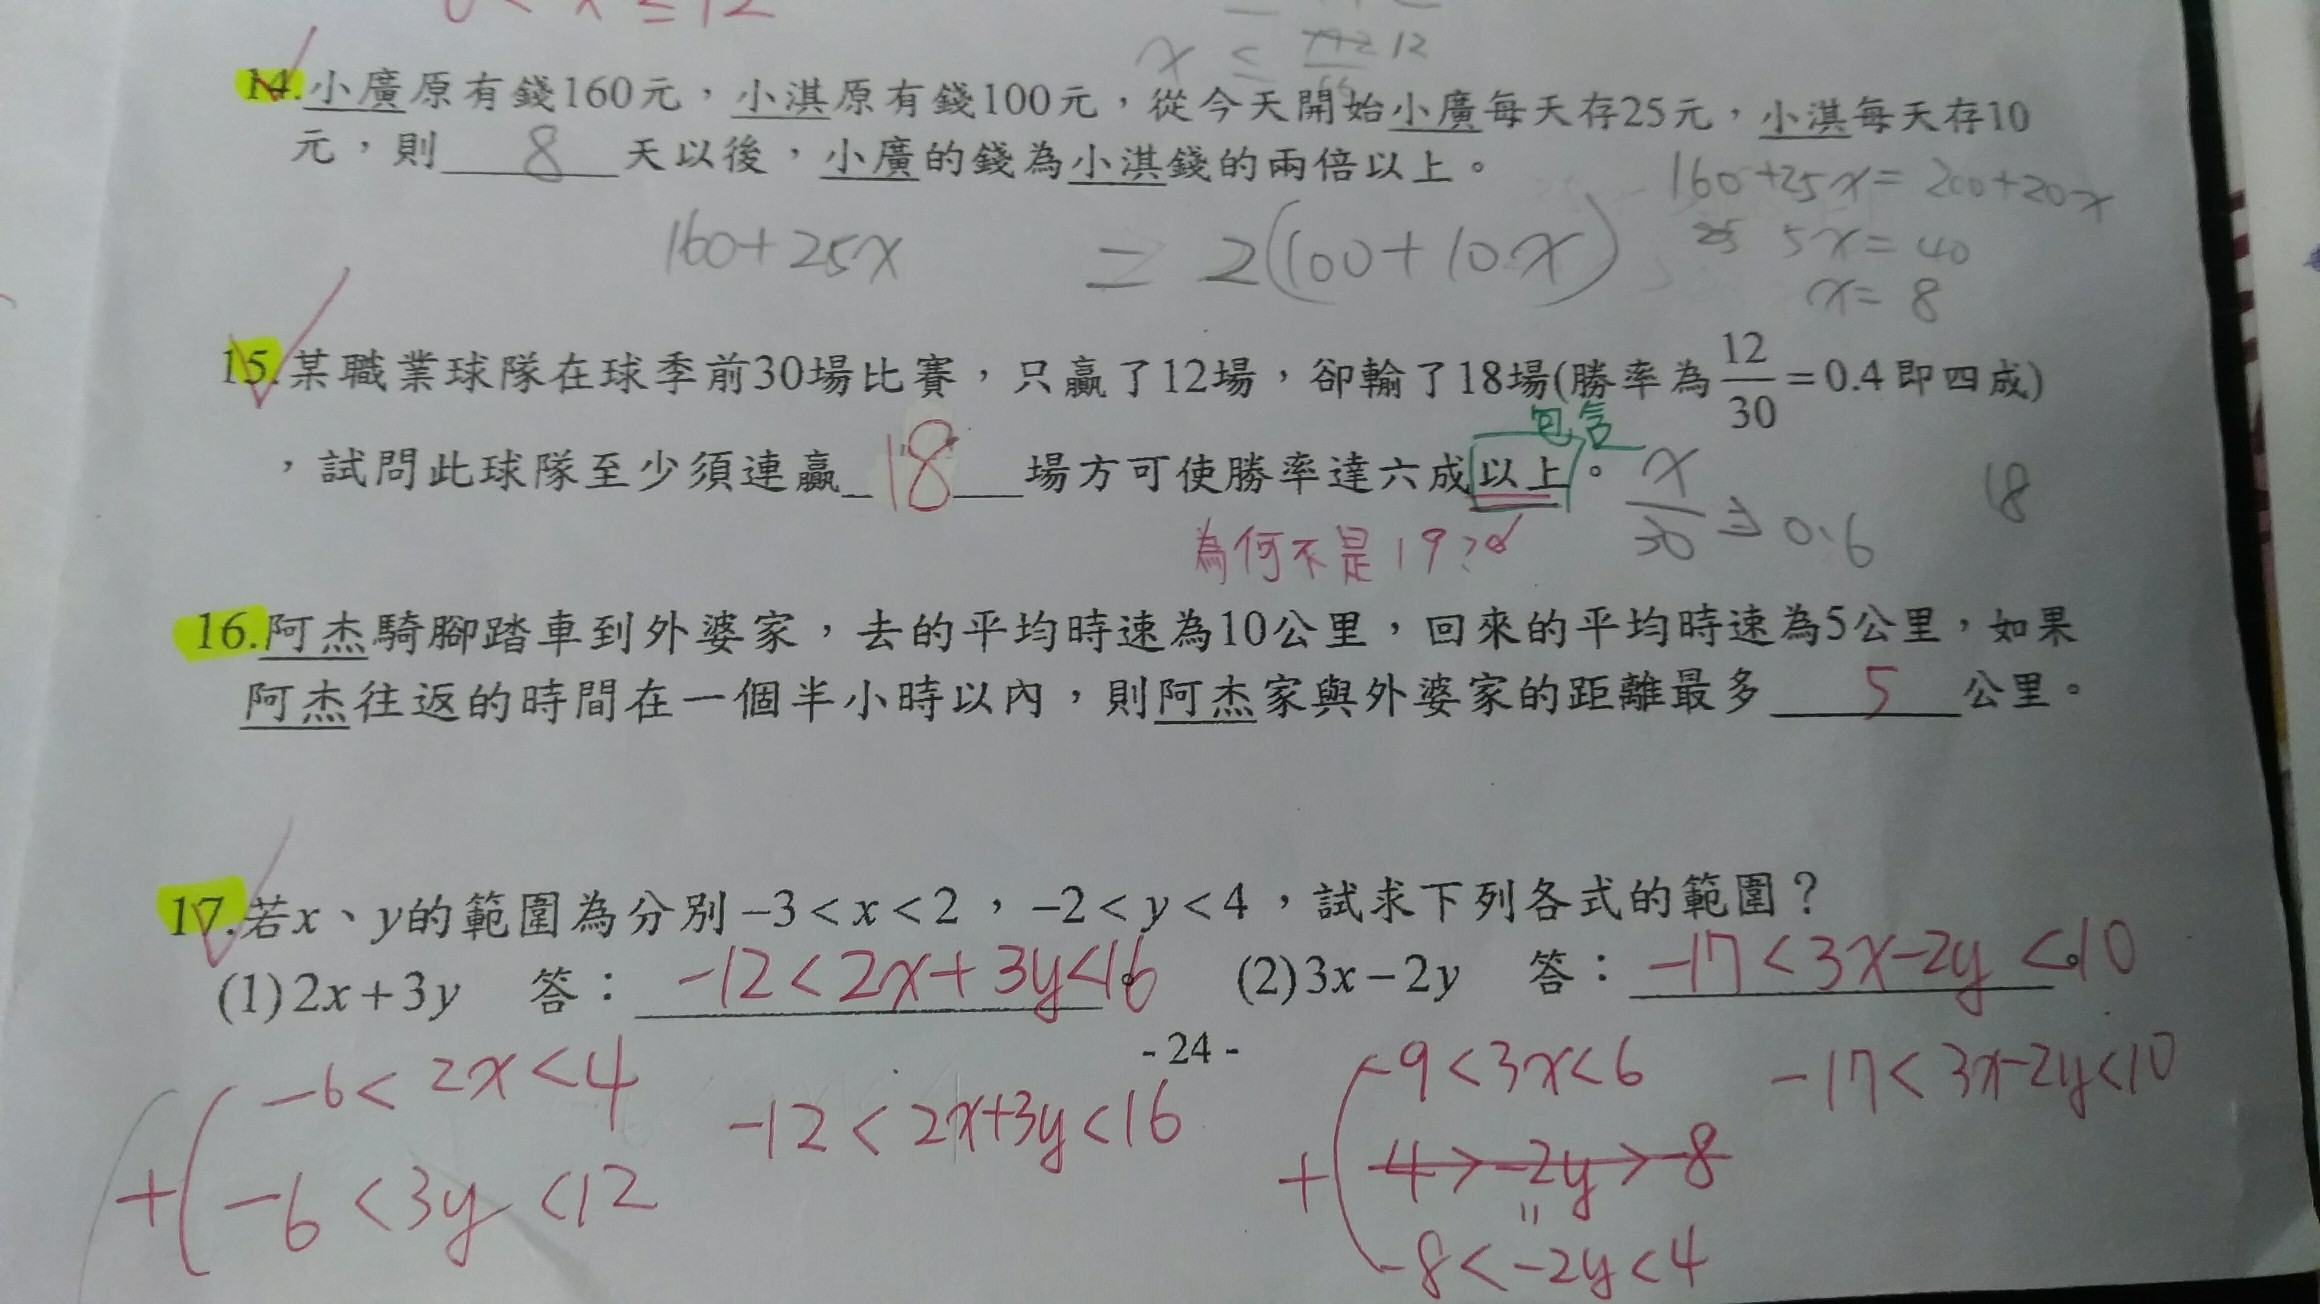 0 < x ≤ 12
x ≤ 12
14.小廣原有錢160元，小淇原有錢100元，從今天開始小廣每天存25元，小淇每天存10
元，則 8 天以後，小廣的錢為小淇錢的兩倍以上。
160+25x = 200+20x
160+25x = 2(100+10x)
5x = 40
x = 8
15.某職業球隊在球季前30場比賽，只贏了12場，卻輸了18場(勝率為12/30=0.4即四成)
包含
，試問此球隊至少須連贏 18 場方可使勝率達六成以上。
x/30 ≥ 0.6
18
為何不是19?
16.阿杰騎腳踏車到外婆家，去的平均時速為10公里，回來的平均時速為5公里，如果
阿杰往返的時間在一個半小時以內，則阿杰家與外婆家的距離最多 5 公里。
17.若x、y的範圍為分別−3<x<2，−2<y<4，試求下列各式的範圍？
(1)2x+3y 答： -12<2x+3y<16 (2)3x−2y 答： -17<3x-2y<10
- 24 -
-6< 2x <4
-9<3x<6
-17< 3x-2y<10
-12 < 2x+3y <16
+
-6 <3y <12
+
4>-2y>-8
-8<-2y<4